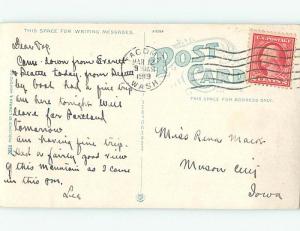 THIS SPACE FOR WRITING MESSAGES.
POST CARD
TACOMA
MAR 2
WASH
U.S. POSTAGE
THIS SPACE FOR ADDRESS ONLY.
Came down from Everett
to Seattle today, from Seattle
by boat had a fine trip
am here tonight will
leave for Portland
tomorrow
am having fine trip.
Had a fairly good view
of this mountain as I came
in this pm.
Lee
Miss Rena Mack
Mason City
Iowa